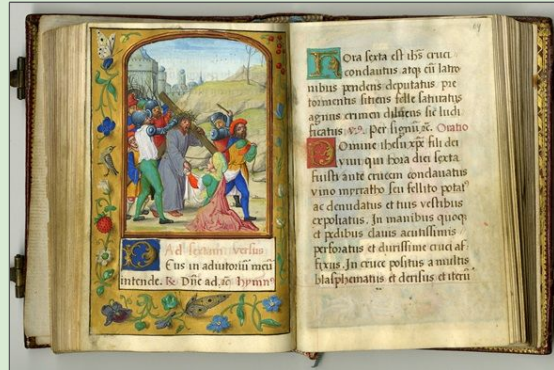 Ad sextam. versus
Deus in adiutoriū meū
intende. R. Dn̄e ad. ac hymn⁹
Hora sexta est ihs cruci
conclauatus atqȝ cū latro
nibus pendens deputatus pre
tormentis sitiens felle saturatus
agnus crimen diluens sic ludi
ficatus v̄s. Per signū ac. Oratio
Domine ihesu xp̄e fili dei
viui qui hora diei sexta
fuisti ante crucem conclauatus
vino myrrato seu fellito potat⁹
ac denudatus et tuis vestibus
expoliatus. In manibus quoqȝ
et pedibus clauis acutissimis
perforatus et durissime cruci af
fixus. In cruce positus a multis
blasphematus et derisus et iterū